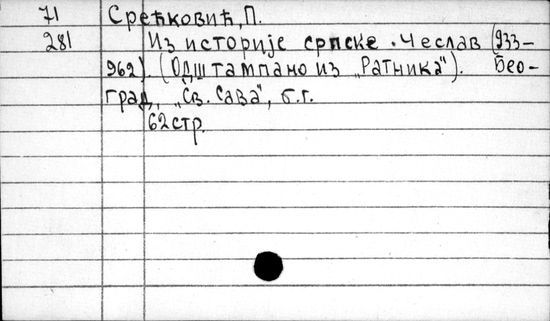 71 Срећковић, П.
281 Из историје српске. Чеслав (933-
962) (Одштампано из „Ратника“). Бео-
град, „Св. Сава“, б.г.
62 стр.